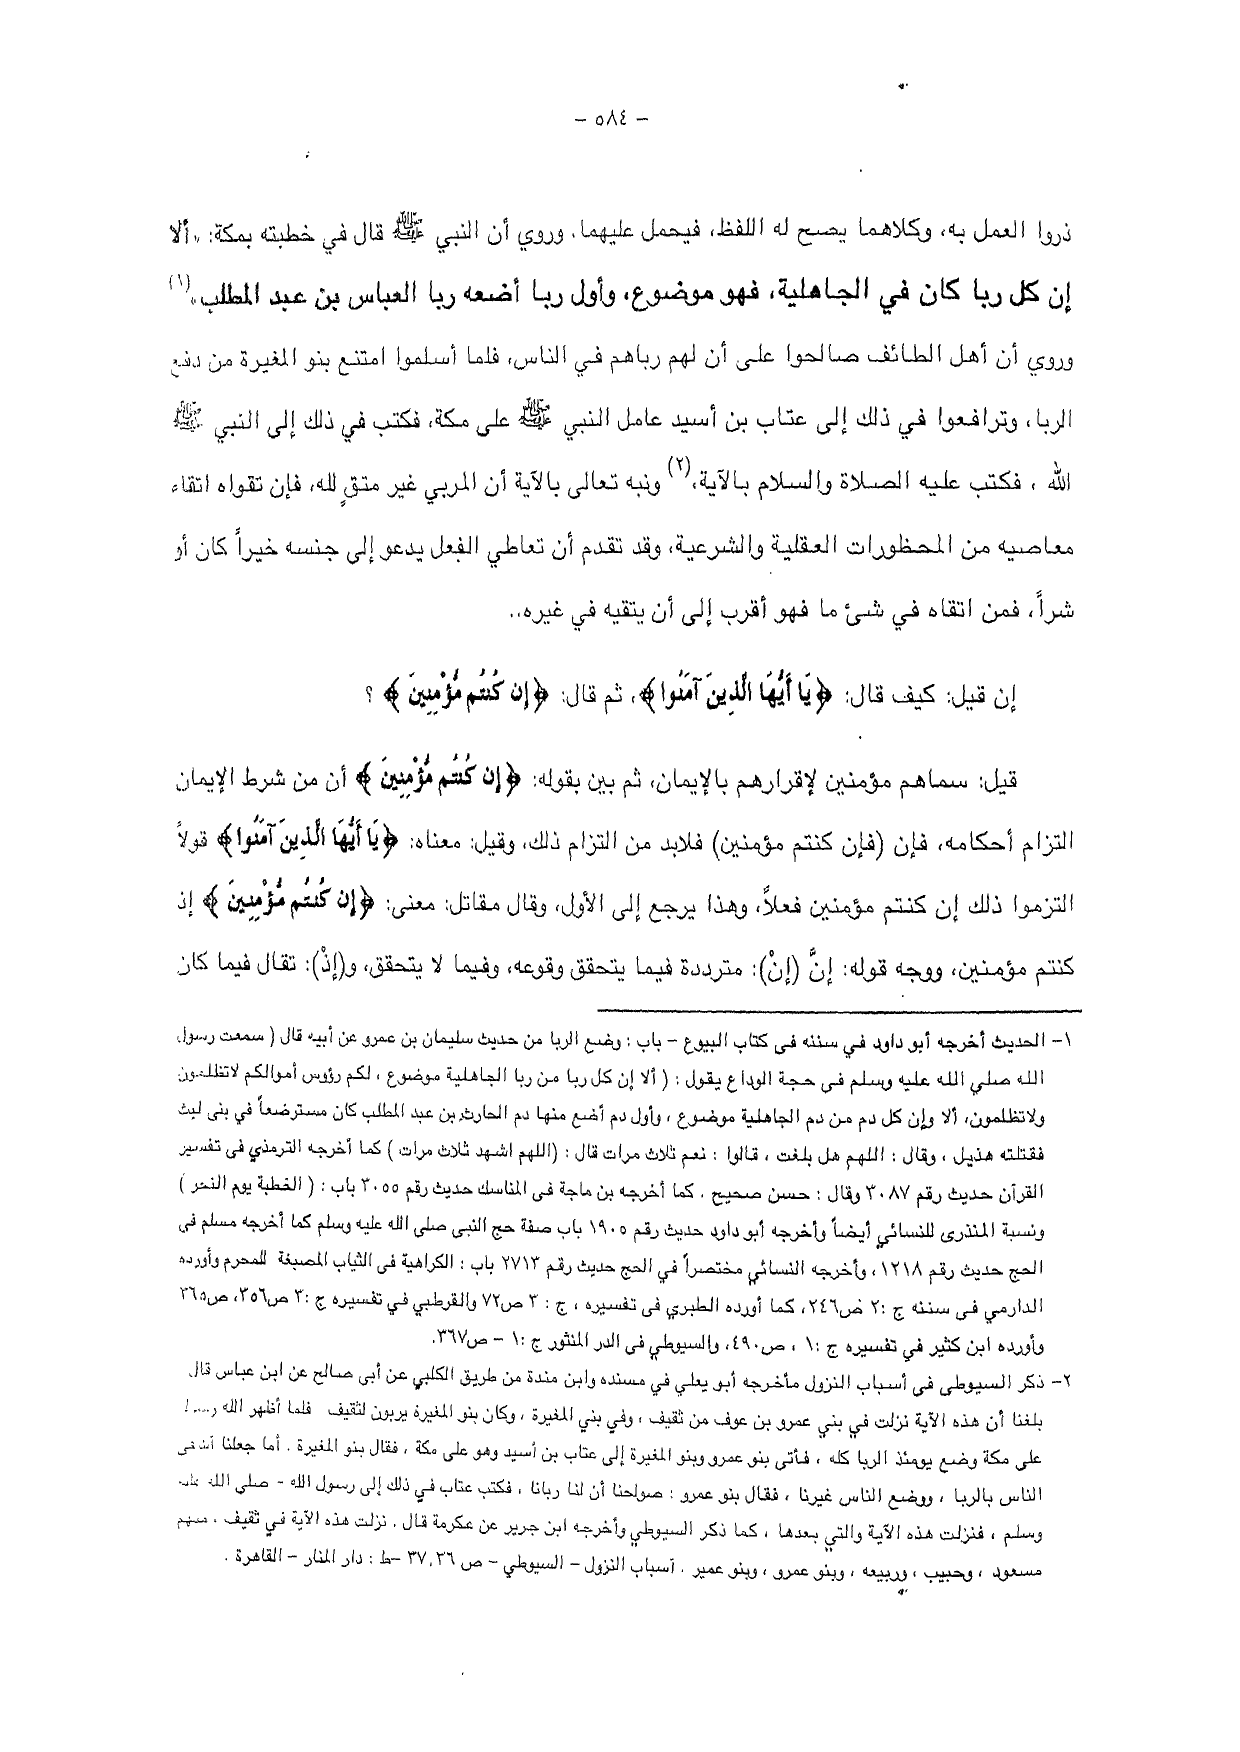 – ٥٨٤ –
ذروا العمل به، وكلاهما يصح له اللفظ، فيحمل عليهما. وروي أن النبي ﷺ قال في خطبته بمكة: «ألا
إن كل ربا كان في الجاهلية، فهو موضوع، وأول ربا أضعه ربا العباس بن عبد المطلب»(١)
وروي أن أهل الطائف صالحوا على أن لهم رباهم في الناس، فلما أسلموا امتنع بنو المغيرة من دفع
الربا، وترافعوا في ذلك إلى عتاب بن أسيد عامل النبي ﷺ على مكة، فكتب في ذلك إلى النبي ﷺ
الله ، فكتب عليه الصلاة والسلام بالآية،(٢) ونبه تعالى بالآية أن المربي غير متقٍ لله، فإن تقواه اتقاء
معاصيه من المحظورات العقلية والشرعية، وقد تقدم أن تعاطي الفعل يدعو إلى جنسه خيراً كان أو
شراً، فمن اتقاه في شئ ما فهو أقرب إلى أن يتقيه في غيره..
إن قيل: كيف قال: ﴿يَا أَيُّهَا الَّذِينَ آمَنُوا﴾، ثم قال: ﴿إِن كُنتُم مُّؤْمِنِينَ﴾ ؟
قيل: سماهم مؤمنين لإقرارهم بالإيمان، ثم بين بقوله: ﴿إِن كُنتُم مُّؤْمِنِينَ﴾ أن من شرط الإيمان
التزام أحكامه، فإن (فإن كنتم مؤمنين) فلابد من التزام ذلك، وقيل: معناه: ﴿يَا أَيُّهَا الَّذِينَ آمَنُوا﴾ قولاً
التزموا ذلك إن كنتم مؤمنين فعلاً، وهذا يرجع إلى الأول، وقال مقاتل: معنى: ﴿إِن كُنتُم مُّؤْمِنِينَ﴾ إذ
كنتم مؤمنين، ووجه قوله: إنَّ (إنْ): مترددة فيما يتحقق وقوعه، وفيما لا يتحقق، و(إذْ): تقال فيما كان
١– الحديث أخرجه أبو داود في سننه في كتاب البيوع – باب : وضع الربا من حديث سليمان بن عمرو عن أبيه قال ( سمعت رسول
الله صلي الله عليه وسلم في حجة الوداع يقول : ( ألا إن كل ربا من ربا الجاهلية موضوع ، لكم رؤوس أموالكم لاتظلمون
ولاتظلمون، ألا وإن كل دم من دم الجاهلية موضوع ، وأول دم أضع منها دم الحارث بن عبد المطلب كان مسترضعاً في بنى ليث
فقتلته هذيل ، وقال : اللهم هل بلغت ، قالوا : نعم ثلاث مرات قال : (اللهم اشهد ثلاث مرات ) كما أخرجه الترمذي فى تفسير
القرآن حديث رقم ٣٠٨٧ وقال : حسن صحيح . كما أخرجه بن ماجة فى المناسك حديث رقم ٣٠٥٥ باب : ( الخطبة يوم النحر )
ونسبة المنذرى للنسائي أيضاً وأخرجه أبو داود حديث رقم ١٩٠٥ باب صفة حج النبي صلى الله عليه وسلم كما أخرجه مسلم فى
الحج حديث رقم ١٢١٨ ، وأخرجه النسائي مختصراً في الحج حديث رقم ٢٧١٣ باب : الكراهية فى الثياب المصبغة للمحرم وأورده
الدارمي فى سننه ج :٢ ص٢٤٦، كما أورده الطبري فى تفسيره ، ج : ٣ ص٧٢ والقرطبي في تفسيره ج :٣ ص٣٥٦، ص٣٦٥
وأورده ابن كثير في تفسيره ج :١ ، ص٤٩٠، والسيوطي فى الدر المنثور ج :١ – ص٣٦٧.
٢– ذكر السيوطى فى أسباب النزول مأخرجه أبو يعلي في مسنده وابن مندة من طريق الكلبي عن أبى صالح عن ابن عباس قال
بلغنا أن هذه الآية نزلت في بني عمرو بن عوف من ثقيف ، وفي بني المغيرة ، وكان بنو المغيرة يربون لثقيف فلما أظهر الله
على مكة وضع يومئذ الربا كله ، فأتي بنو عمرو وبنو المغيرة إلى عتاب بن أسيد وهو على مكة ، فقال بنو المغيرة . أما جعلنا أشقى
الناس بالربا ، ووضع الناس غيرنا ، فقال بنو عمرو : صولحنا أن لنا ربانا ، فكتب عتاب في ذلك إلى رسول الله – صلى الله عليه
وسلم ، فنزلت هذه الآية والتي بعدها ، كما ذكر السيوطي وأخرجه ابن جرير عن عكرمة قال . نزلت هذه الآية في ثقيف ، منهم
مسعود ، وحبيب ، وربيعه ، وبنو عمرو ، وبنو عمير . أسباب النزول – السيوطي – ص ٣٧،٣٦ –ط : دار المنار – القاهرة .